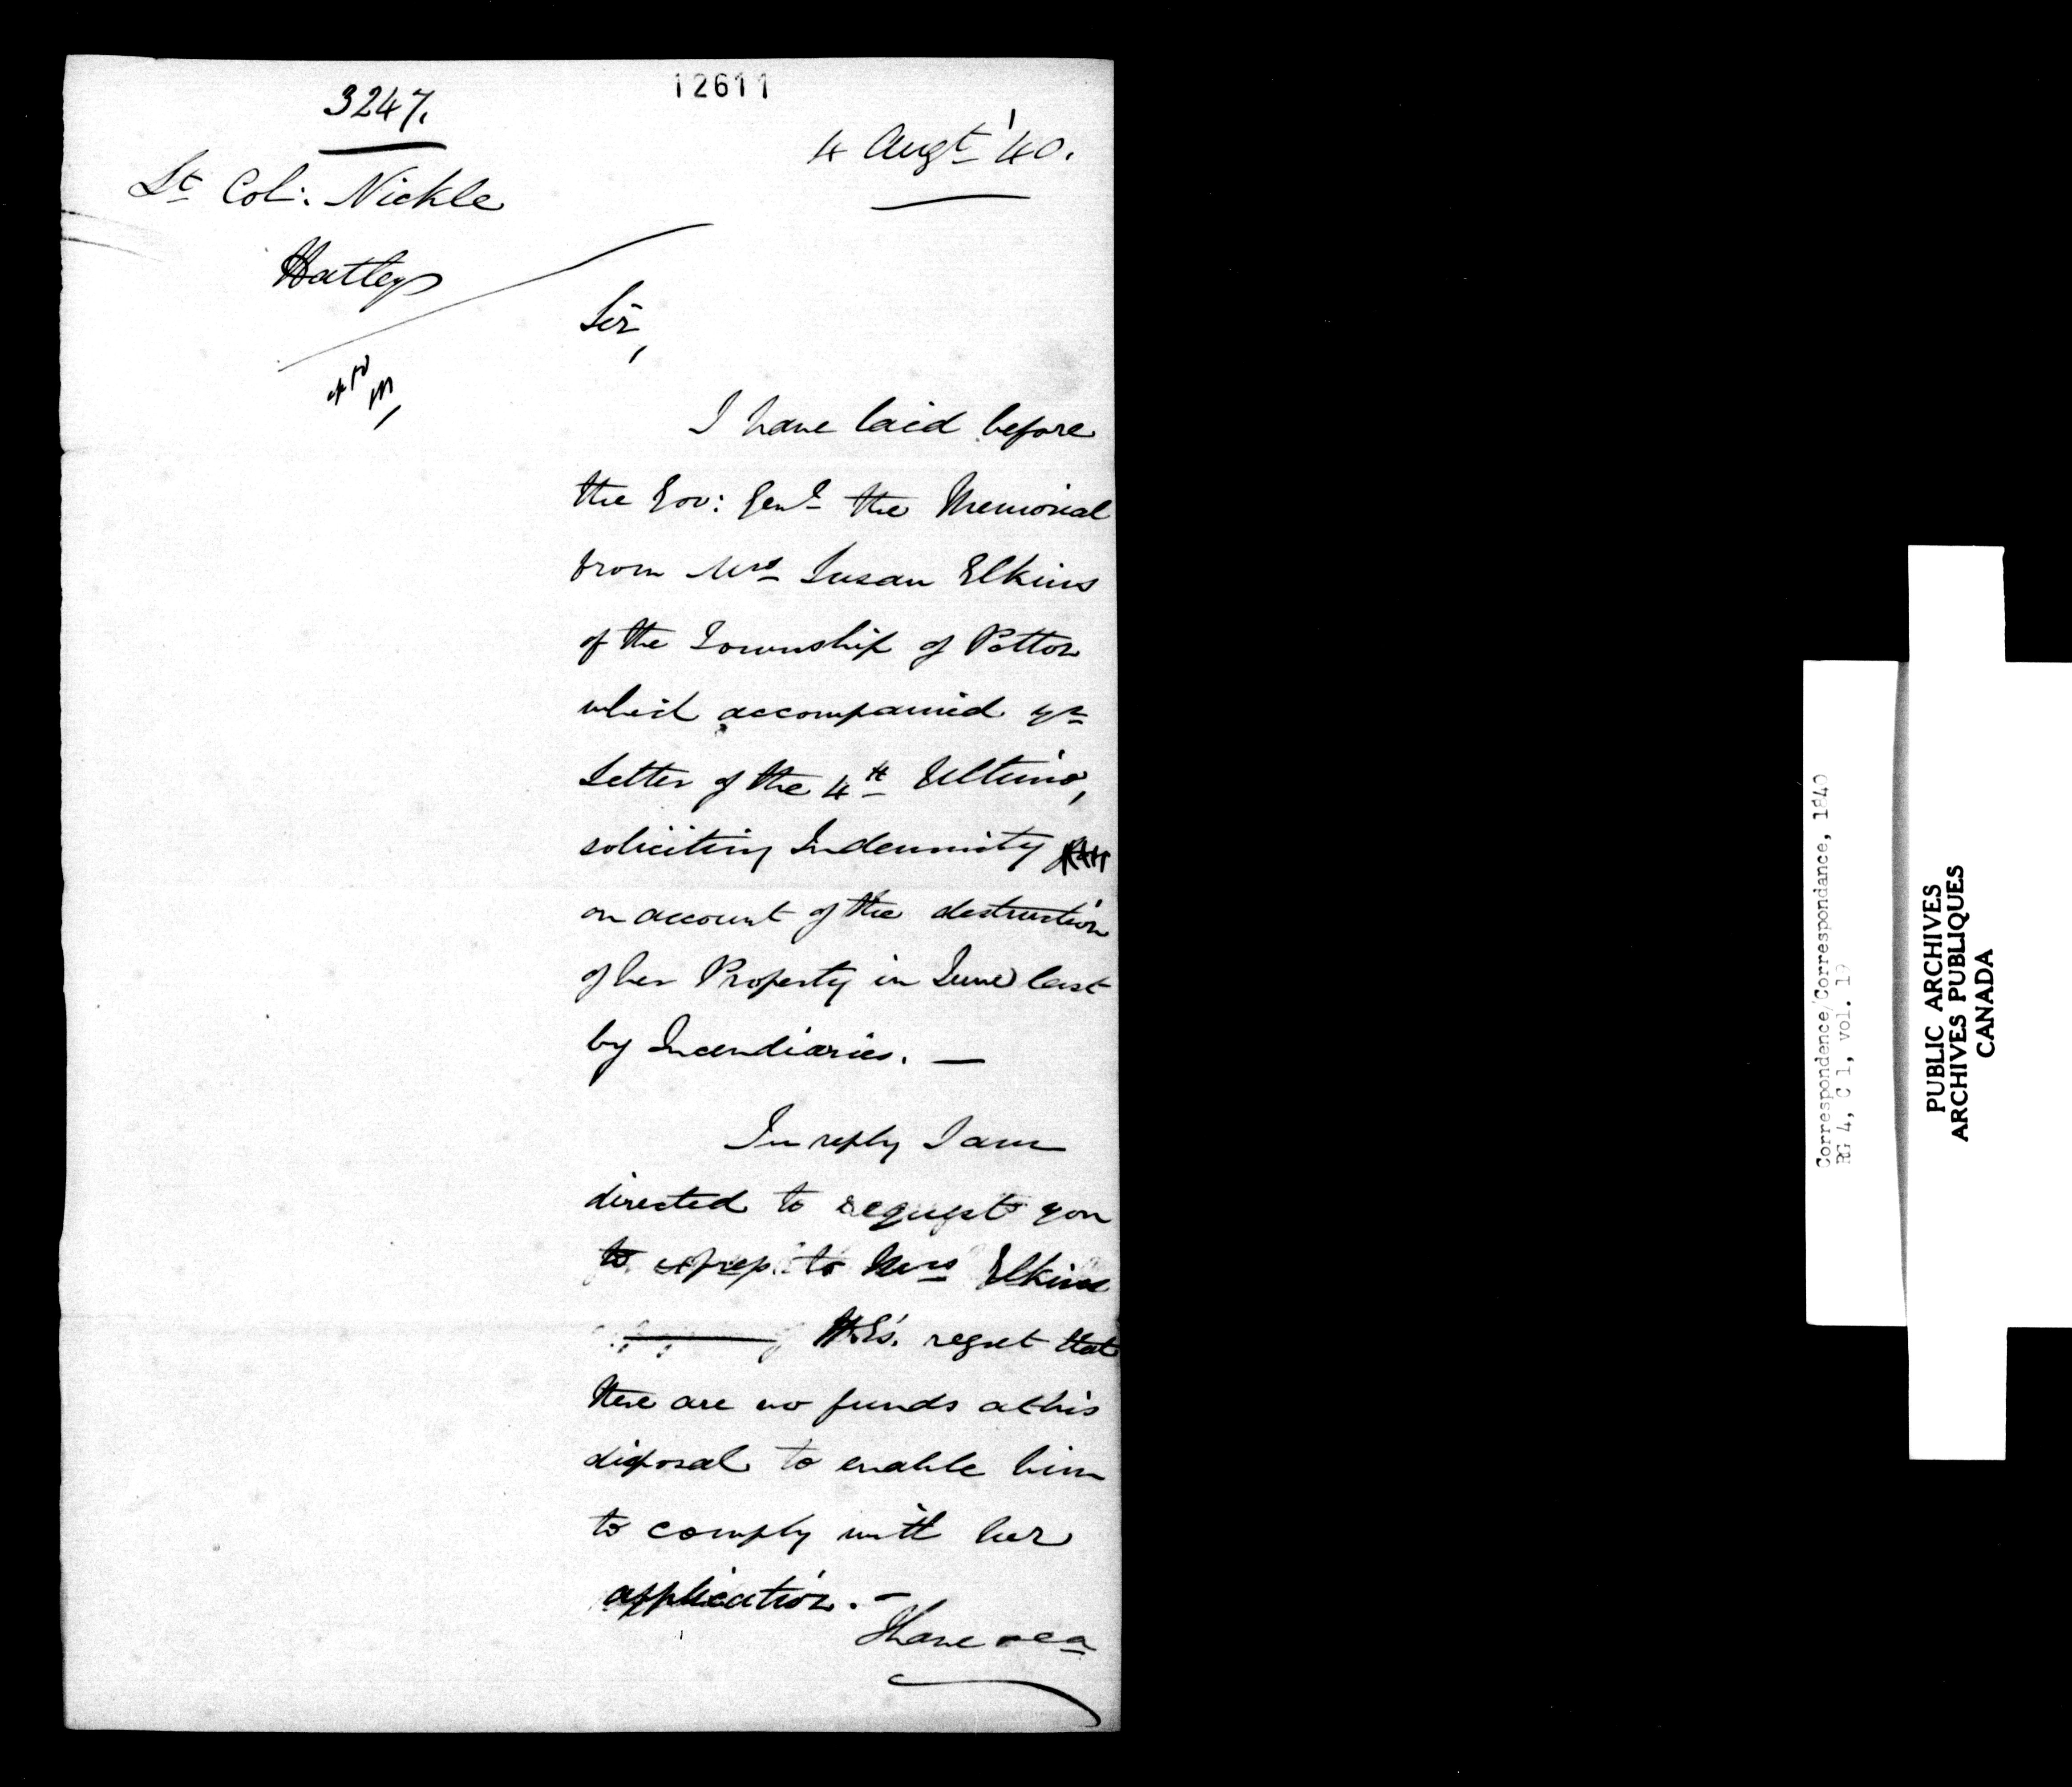 12611
3247.
4 Augt '40.
Lt Col: Nickle
Hatley
Sir,
I have laid before
the Gov: Genl the Memorial
from Mrs Susan Elkins
of the Township of Potton
which accompanied yr
Letter of the 4th Ultimo,
soliciting Indemnity
on account of the destruction
of her Property in June last
by Incendiaries. —
In reply I am
directed to request you
to to Mrs Elkins
H.E's. regret that
there are no funds at his
disposal to enable him
to comply with her
application. —
I have &ca
Correspondence/Correspondance, 1840
RG 4, C 1, vol. 19
PUBLIC ARCHIVES
ARCHIVES PUBLIQUES
CANADA